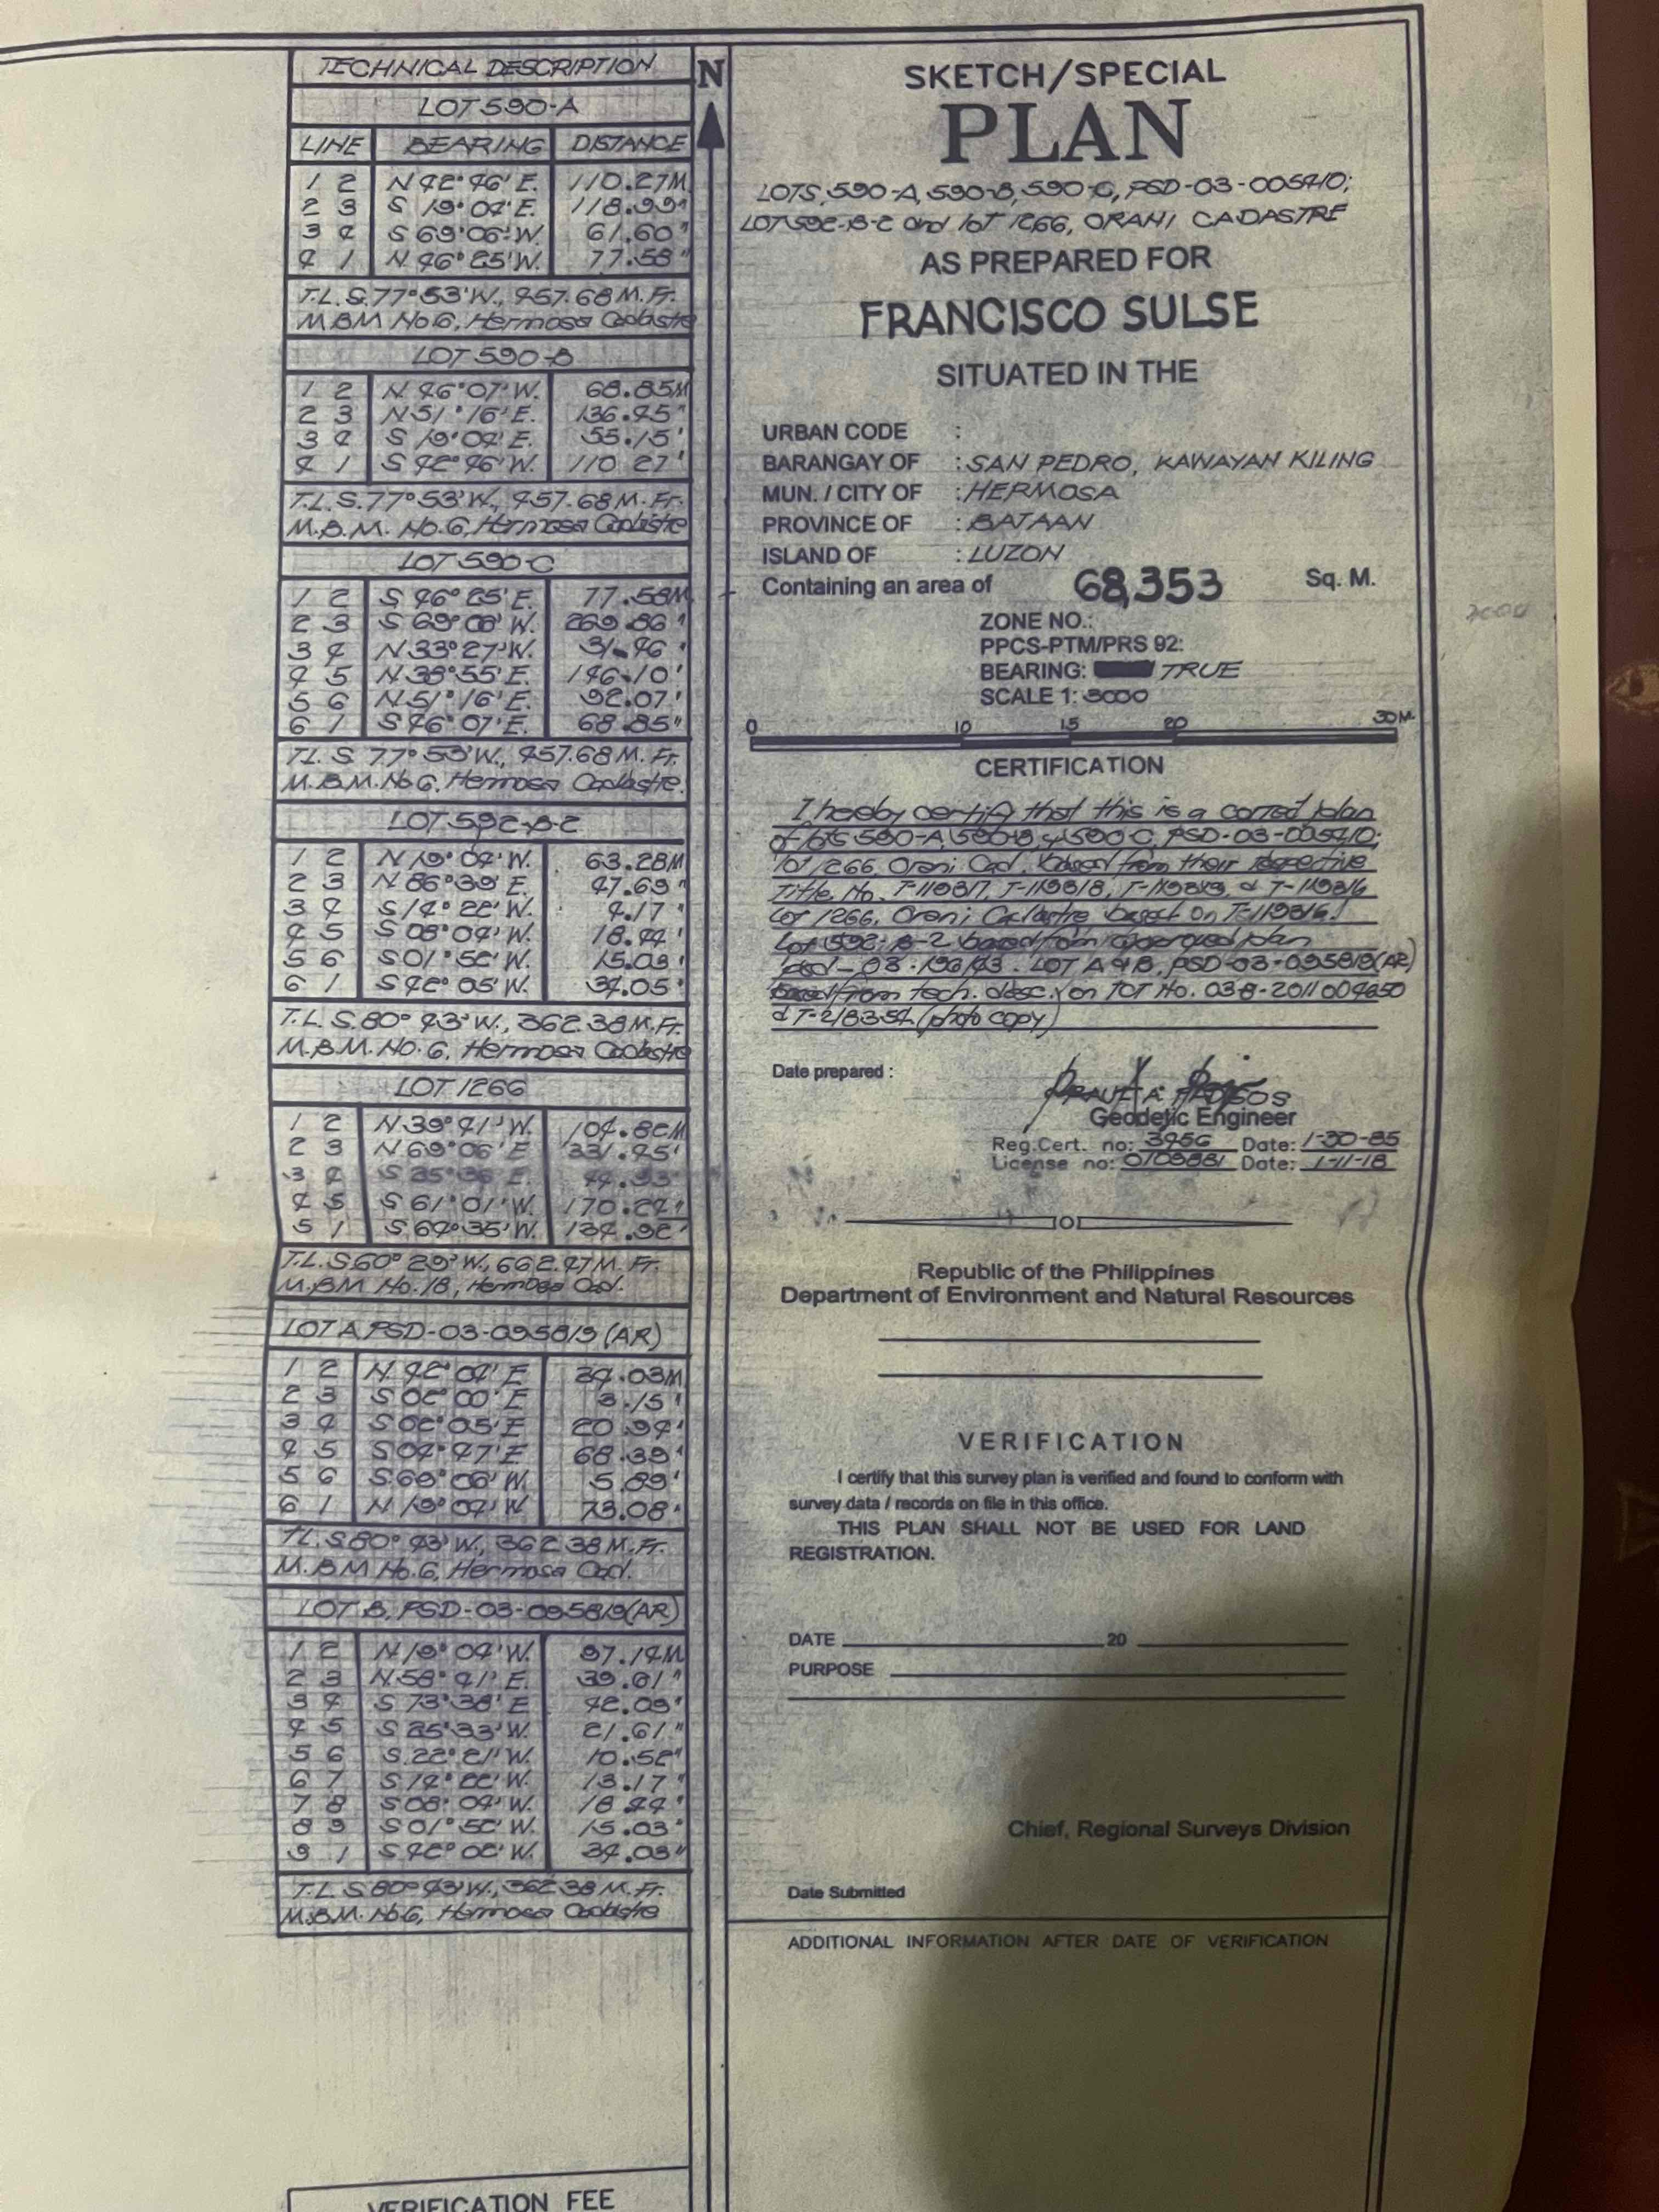 TECHNICAL DESCRIPTION
LOT 590-A
LINE BEARING DISTANCE
1 2 N 42° 46' E. 110.27M
2 3 S 19° 04' E. 118.99"
3 4 S 69° 06' W. 61.60"
4 1 N. 46° 25' W. 77.58"
T.L. S. 77° 53' W., 457.68 M. Fr.
M.B.M No. 6, Hermosa Cadastre
LOT 590-B
1 2 N. 46° 07' W. 68.85M
2 3 N 51° 16' E. 136.45"
3 4 S 19° 04' E. 55.15'
4 1 S 42° 46' W. 110 27'
T.L. S. 77° 53' W., 457.68 M. Fr.
M.B.M. No. 6, Hermosa Cadastre
LOT 590-C
1 2 S 46° 25' E. 77.58M
2 3 S 69° 08' W. 269.86"
3 4 N 33° 27' W. 31.46"
4 5 N. 38° 55' E. 146.10'
5 6 N 51° 16' E. 92.07'
6 1 S 46° 07' E. 68.85"
T.L. S 77° 53' W., 457.68 M. Fr.
M.B.M. No 6, Hermosa Cadastre.
LOT 592-B-2
1 2 N 19° 04' W. 63.28M
2 3 N 86° 39' E. 47.69"
3 4 S 14° 22' W. 4.17"
4 5 S 08° 04' W. 18.44'
5 6 S 01° 52' W. 15.03'
6 1 S 42° 05' W. 34.05'
T.L. S. 80° 43' W., 362.38 M. Fr.
M.B.M. No. 6, Hermosa Cadastre
LOT 1266
1 2 N 39° 41' W. 104.82M
2 3 N 69° 06' E 331.45'
3 4 S 35° 36' E. 44.93"
4 5 S 61° 01' W. 170.24"
5 1 S. 64° 35' W. 134.92'
T.L. S. 60° 29' W., 662.47 M. Fr.
M.B.M No. 18, Hermosa Cad.
LOT A, PSD-03-095819 (AR)
1 2 N. 42° 04' E 34.03M
2 3 S 02° 00' E 3.15'
3 4 S 02° 05' E 20.94'
4 5 S 04° 47' E 68.39'
5 6 S. 69° 06' W. 5.89'
6 1 N 19° 04' W 73.08"
T.L. S. 80° 43' W., 362 38 M. Fr.
M.B.M No. 6, Hermosa Cad.
LOT B, PSD-03-095819 (AR)
1 2 N 19° 04' W. 97.14M
2 3 N. 58° 41' E. 39.61"
3 4 S 73° 38' E 42.09'
4 5 S 25° 33' W. 21.61"
5 6 S. 22° 21' W. 10.52"
6 7 S 14° 22' W. 13.17"
7 8 S 08° 04' W. 18 44'
8 9 S 01° 52' W. 15.03"
9 1 S. 42° 02' W. 34.03"
T.L. S 80° 43' W., 362 38 M. Fr.
M.B.M. No 6, Hermosa Cadastre
VERIFICATION FEE
N
SKETCH/SPECIAL
PLAN
LOTS, 590-A, 590-B, 590-C, PSD-03-005410;
LOT 592-B-2 and lot 1266, ORANI CADASTRE
AS PREPARED FOR
FRANCISCO SULSE
SITUATED IN THE
URBAN CODE :
BARANGAY OF : SAN PEDRO, KAWAYAN KILING
MUN. / CITY OF : HERMOSA
PROVINCE OF : BATAAN
ISLAND OF : LUZON
Containing an area of 68,353 Sq. M.
ZONE NO.:
PPCS-PTM/PRS 92:
BEARING: TRUE
SCALE 1: 3000
0 10 15 20 30 M.
CERTIFICATION
I hereby certify that this is a correct plan
of lots 590-A, 590-B, & 590-C, PSD-03-005410;
lot 1266, Orani Cad. based from their respective
Title. No. T-119317, T-119318, & T-119316
Lot 1266, Orani Cadastre based on T-119316.
Lot 592-B-2 based from approved plan
Psd-03-196143. LOT A & B, PSD-03-095819 (AR)
based from tech. desc. on TCT No. 038-2011004650
& T-218354 (photo copy)
Date prepared :
Geodetic Engineer
Reg.Cert. no: 3456 Date: 1-30-85
License no: 0109881 Date: 1-11-18
Republic of the Philippines
Department of Environment and Natural Resources
VERIFICATION
I certify that this survey plan is verified and found to conform with
survey data / records on file in this office.
THIS PLAN SHALL NOT BE USED FOR LAND
REGISTRATION.
DATE 20
PURPOSE
Chief, Regional Surveys Division
Date Submitted
ADDITIONAL INFORMATION AFTER DATE OF VERIFICATION